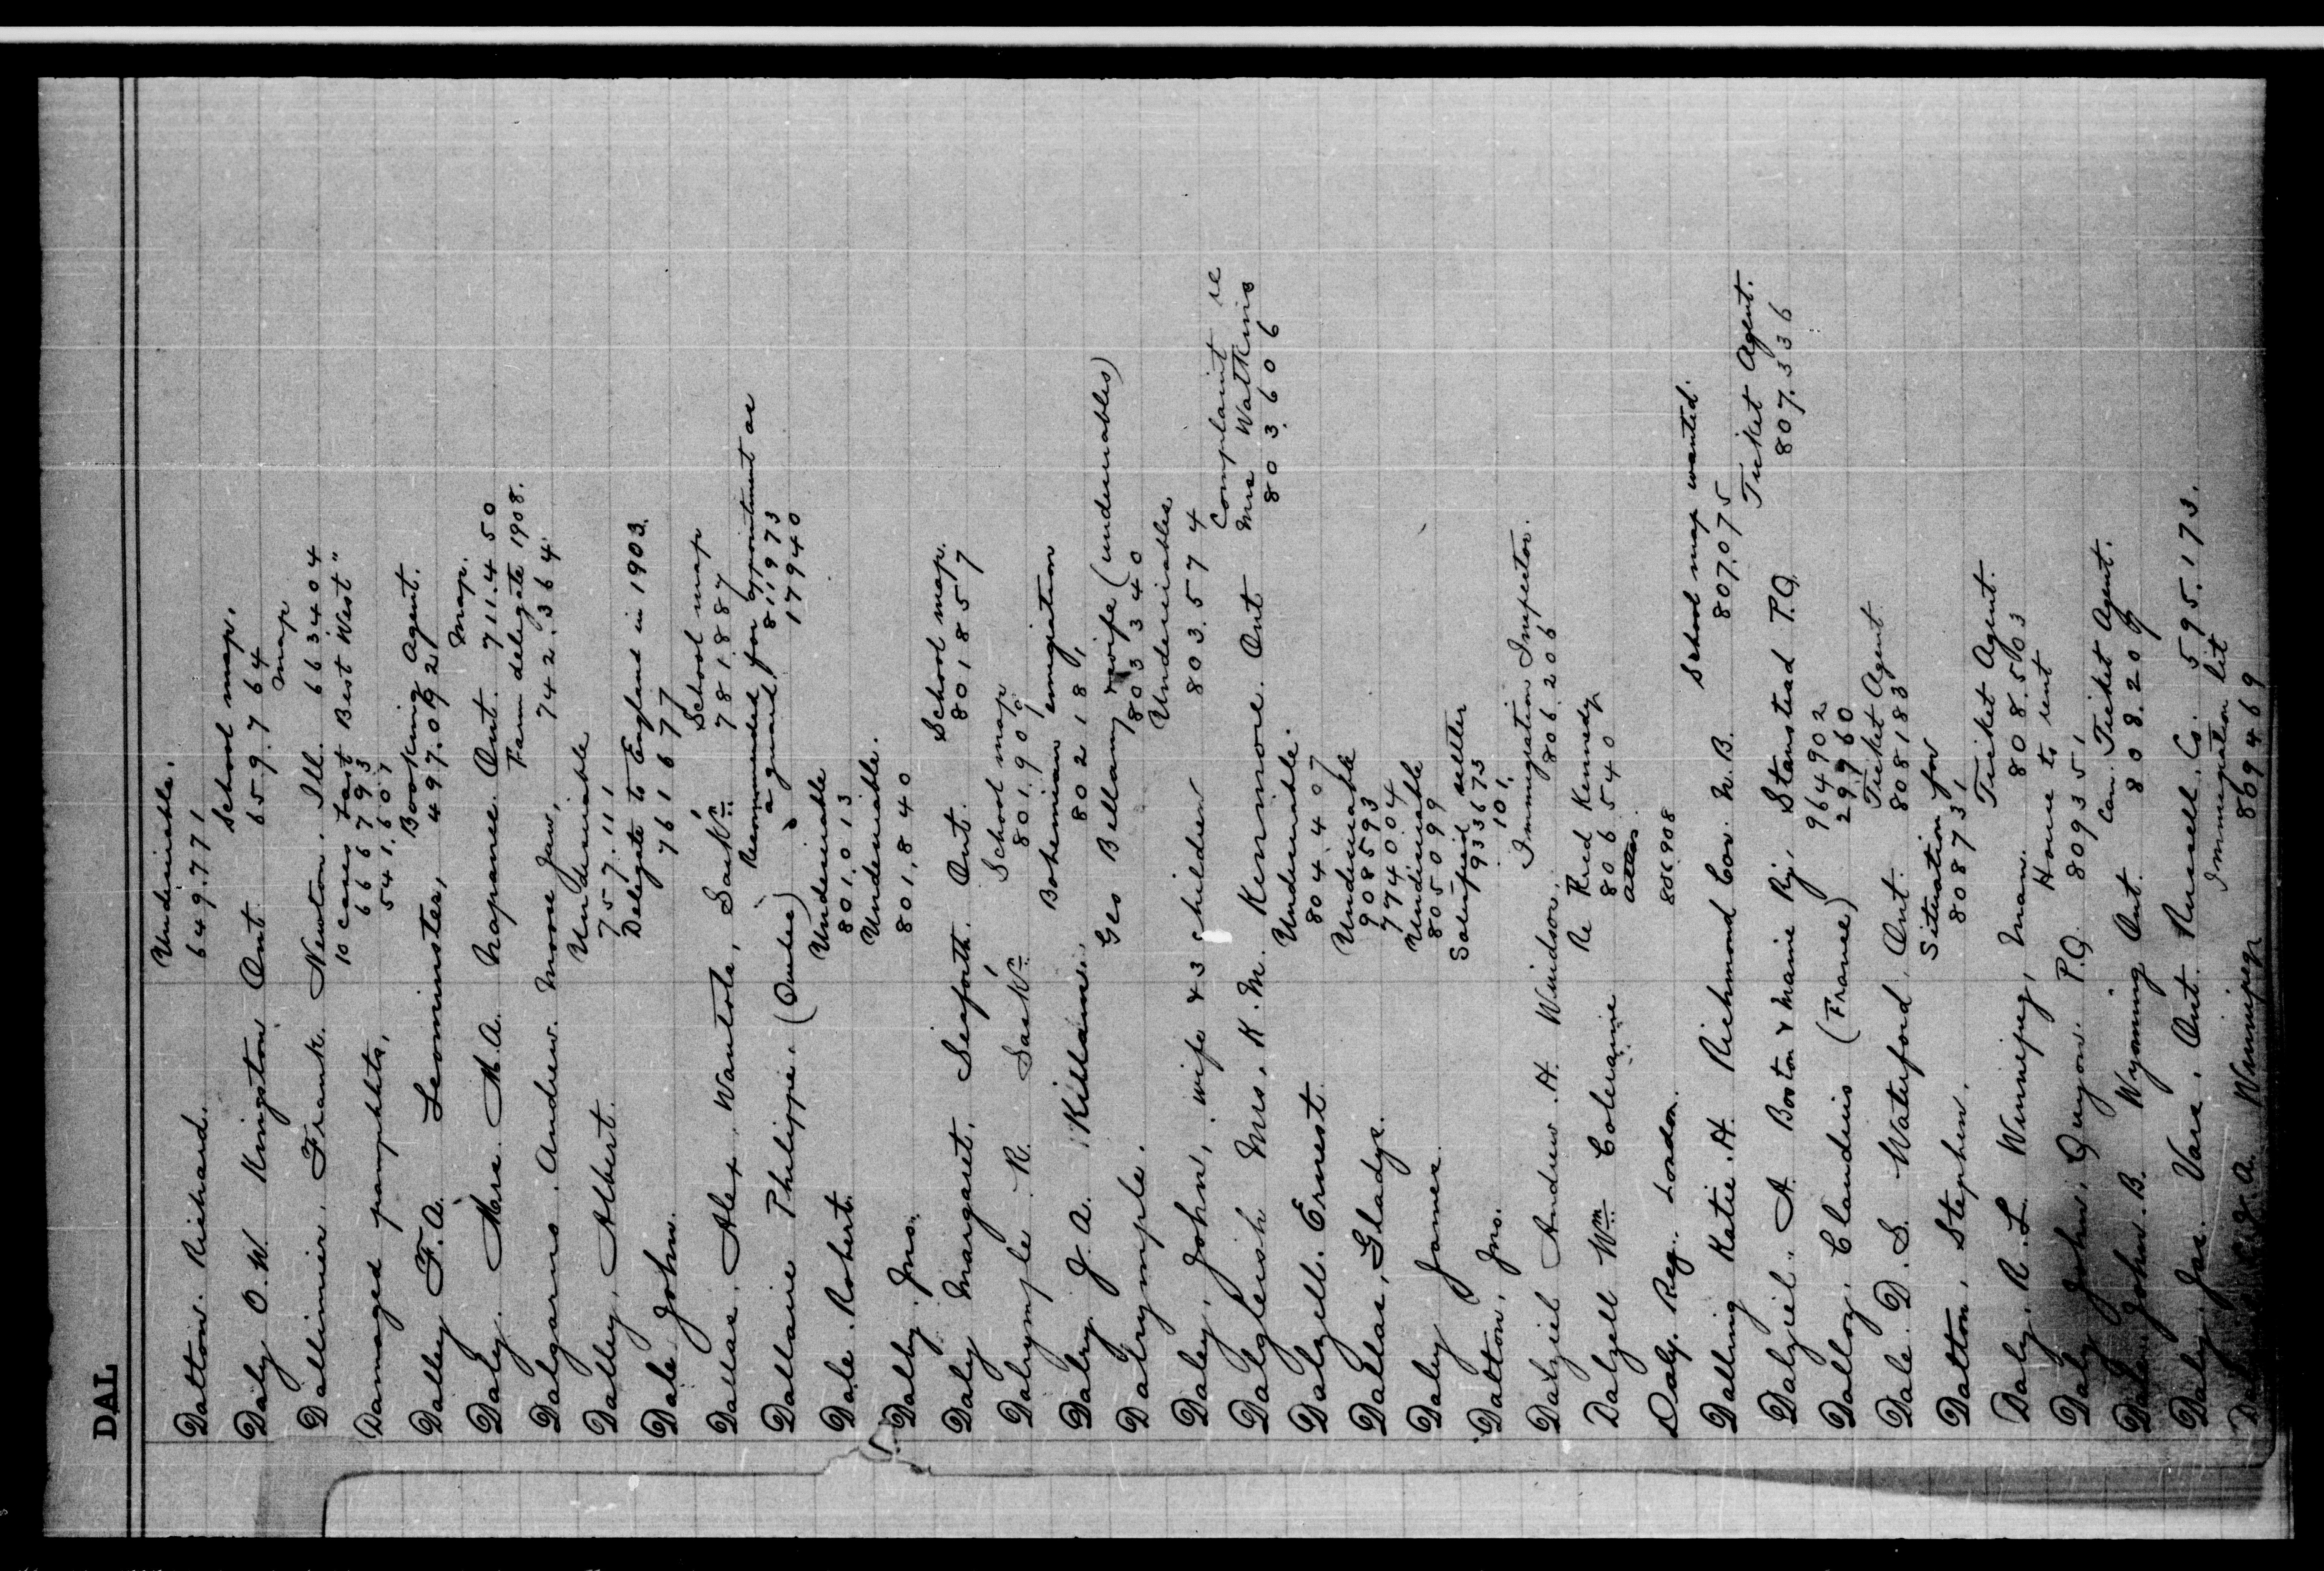 DAL
Undesirable.
Dalton. Richard. 649.771
School map.
Daly O.W. Kingston Ont. 659.764
map
Dallimier, Frank. Newton. Ill. 663404
10 cases Last Best West"
Damaged pamphlets, 666793
541.607
Booking Agent.
Dalley F.A. Leominster, 497.092
map.
Daly. Mrs. M.A. Napanee. Ont. 711.450
Farm delegate 1908.
Dalgarno. Andrew. Moose Jaw, 742.364
Undesirable
Dalley, Albert. 757.111
Delegate to England in 1903.
Dale John. 761677
School map
Dallas. Alex. Sask'n 781.887
Recommended for appointment as
Dallaire Philippe. (Quebec) a guard 811973
17940
Undesirable
Dale. Robert. 801.013
Undesirable.
Dalby. Jno. 801,840
School map.
Daly Margaret. Seaforth. Ont. 801857
School map
Dalrymple R. Sask'n 801.909
Bohemian emigration
Dalry J.A. Killam. 802181
Geo Bellamy & wife (undesirables)
Dalrymple. 803340
Undesirables
Daley, John, wife & 3 children 803.574
Complaint re
Dalgleish Mrs. K.M. Kenmore. Ont Mrs Watkins
803606
Undesirable.
Dalzell. Ernest. 804.407
Undesirable
Dallas, Gladys. 908593
774004
Undesirable
Daley James. 805099
Dalton, Jno. 933673
101,
Immigration Inspector.
Dalziel Andrew. H. Windsor. 806.206
Re Fred Kennedy
Dalzell Wm Coleraine 806540
Daly. Reg. London. 806908
School map wanted.
Dalling Katie. H. Richmond Cor. N.B. 807.075
Ticket Agent.
Dalziel. A. Boston & Maine Ry, Stanstead P.Q. 807.336
964902
Dalloz, Claudius (France) 29960
Ticket Agent
Dale D.S. Waterford. Ont. 808183
Situation for
Dalton, Stephen. 808731
Ticket Agent.
Daly. R.L. Winnipeg, Man. 808.503
Home to rent
Daly John. Quyon. P.Q. 809351
Can. Ticket Agent.
John. B. Wyoming Ont. 808.209
Daley. Jas. Vars. Ont. Russell. Co. 595.173.
Immigration lit
Winnipeg 869469